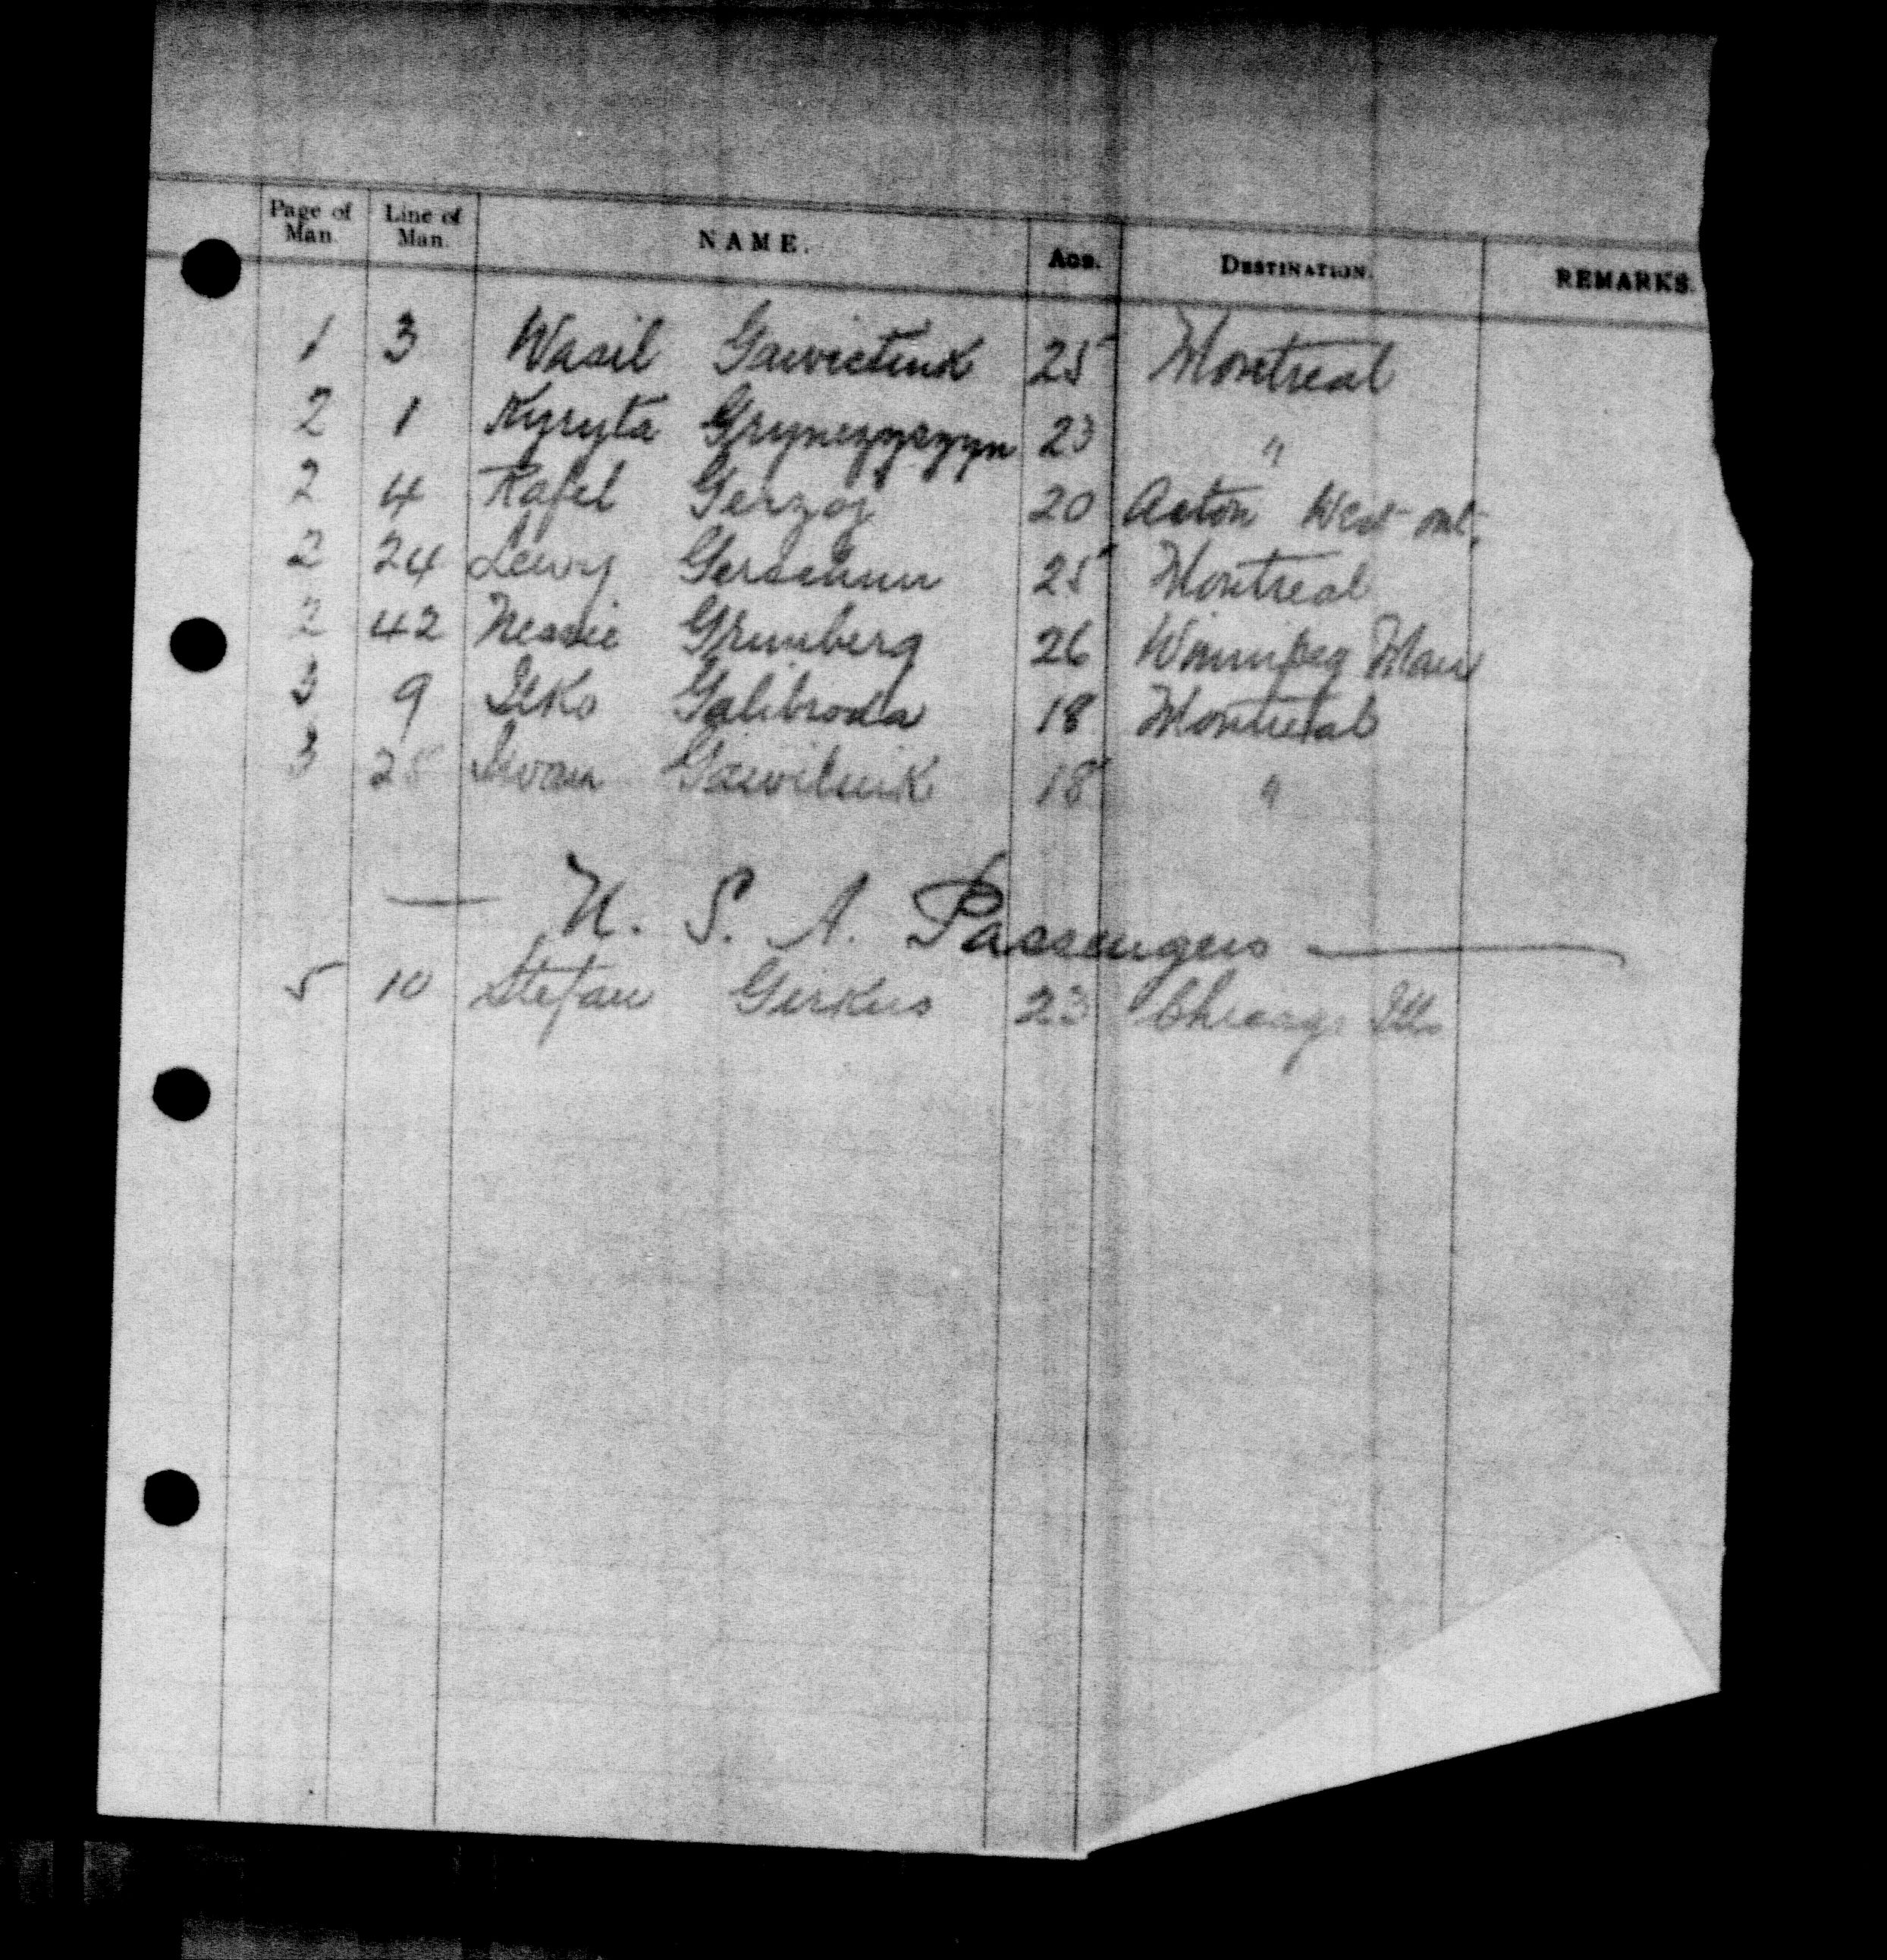 Page of Man. Line of Man. NAME. AGE. DESTINATION. REMARKS.
1 3 Wasil 25 Montreal
2 1 Kyryta 23 "
2 4 Rafel Gerzog 20 Acton West Ont.
2 24 Lewy 25 Montreal
2 42 Nessie Grunberg 26 Winnipeg Man
3 9 Ilko Galibroda 18 Montreal
3 25 Iwan Gawiluik 18 "
— U. S. A. Passengers —
5 10 Stefan Girkus 23 Chicago Ills